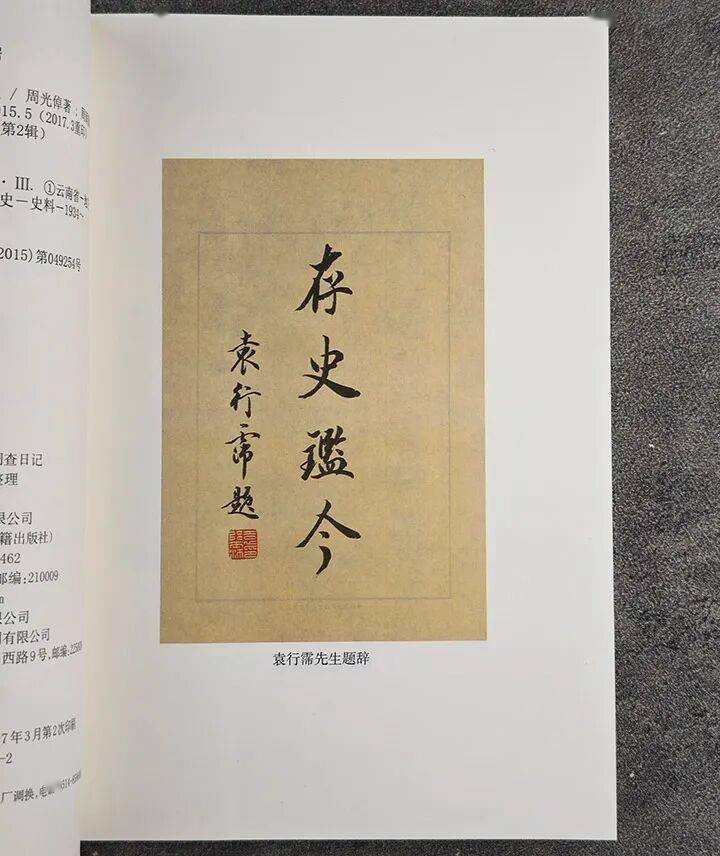 / 周光倬著;
015.5(2017.3重印)
第2辑)
·Ⅲ. ①云南省-地
史-史料-1934~
2015)第049254号
查日记
整理
限公司
籍出版社)
462
邮编:210009
限公司
有限公司
西路9号,邮编:225
7年3月第2次印刷
-2
厂调换,电
存史鑑今
袁行霈题
袁行霈先生题辞